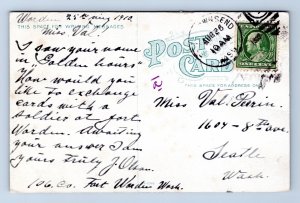 Worden 25th Aug 1910.
THIS SPACE FOR WRITING MESSAGES
Miss Val.
I saw your name
in "Golden hours"
You would you
like to exchange
cards with a
Soldier at fort
Worden. Awaiting
your answer I am
yours truly J. Olson.
106. Co. Fort Worden Wash.
POST CARD
TOWNSEND
AUG 26
10 AM
WASH
THIS SPACE FOR ADDRESS ONLY
Miss Val.
1604 - 8th ave.
Seatle
Wash.